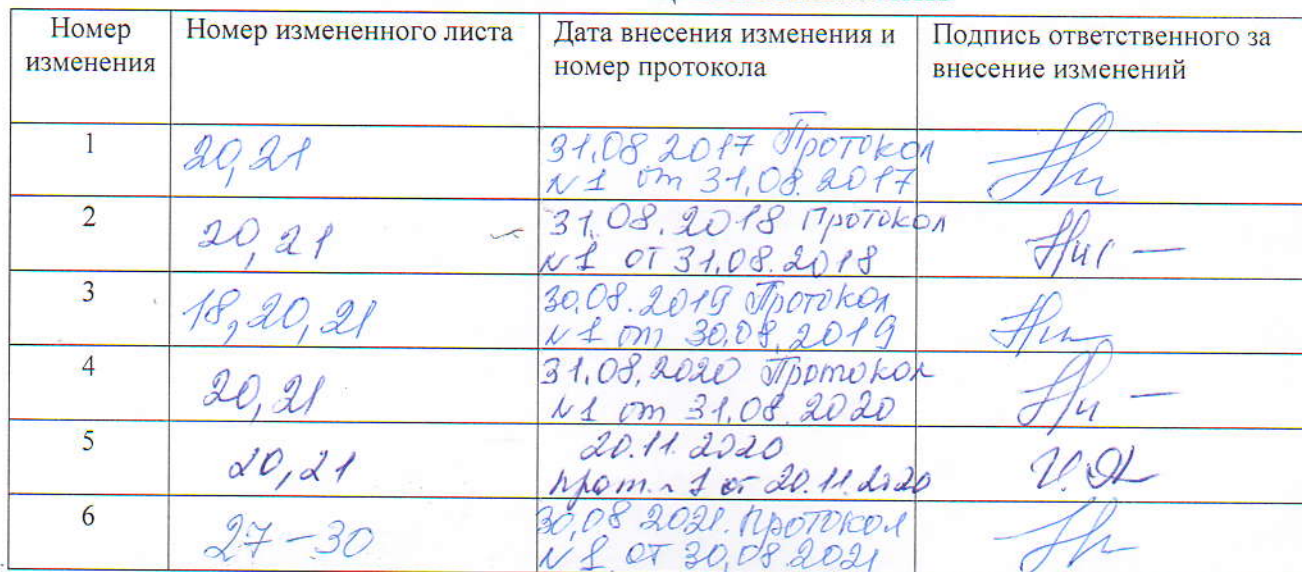 Номер изменения
Номер измененного листа
Дата внесения изменения и номер протокола
Подпись ответственного за внесение изменений
1
20,21
31.08.2017 Протокол
N1 от 31.08.2017
2
20,21
31.08.2018 Протокол
N1 от 31.08.2018
3
18,20,21
30.08.2019 Протокол
N1 от 30.08.2019
4
20,21
31.08.2020 Протокол
N1 от 31.08.2020
5
20,21
20.11.2020
прот. N 1 от 20.11.2020
6
27-30
30.08 2021. Протокол
N1 от 30.08.2021